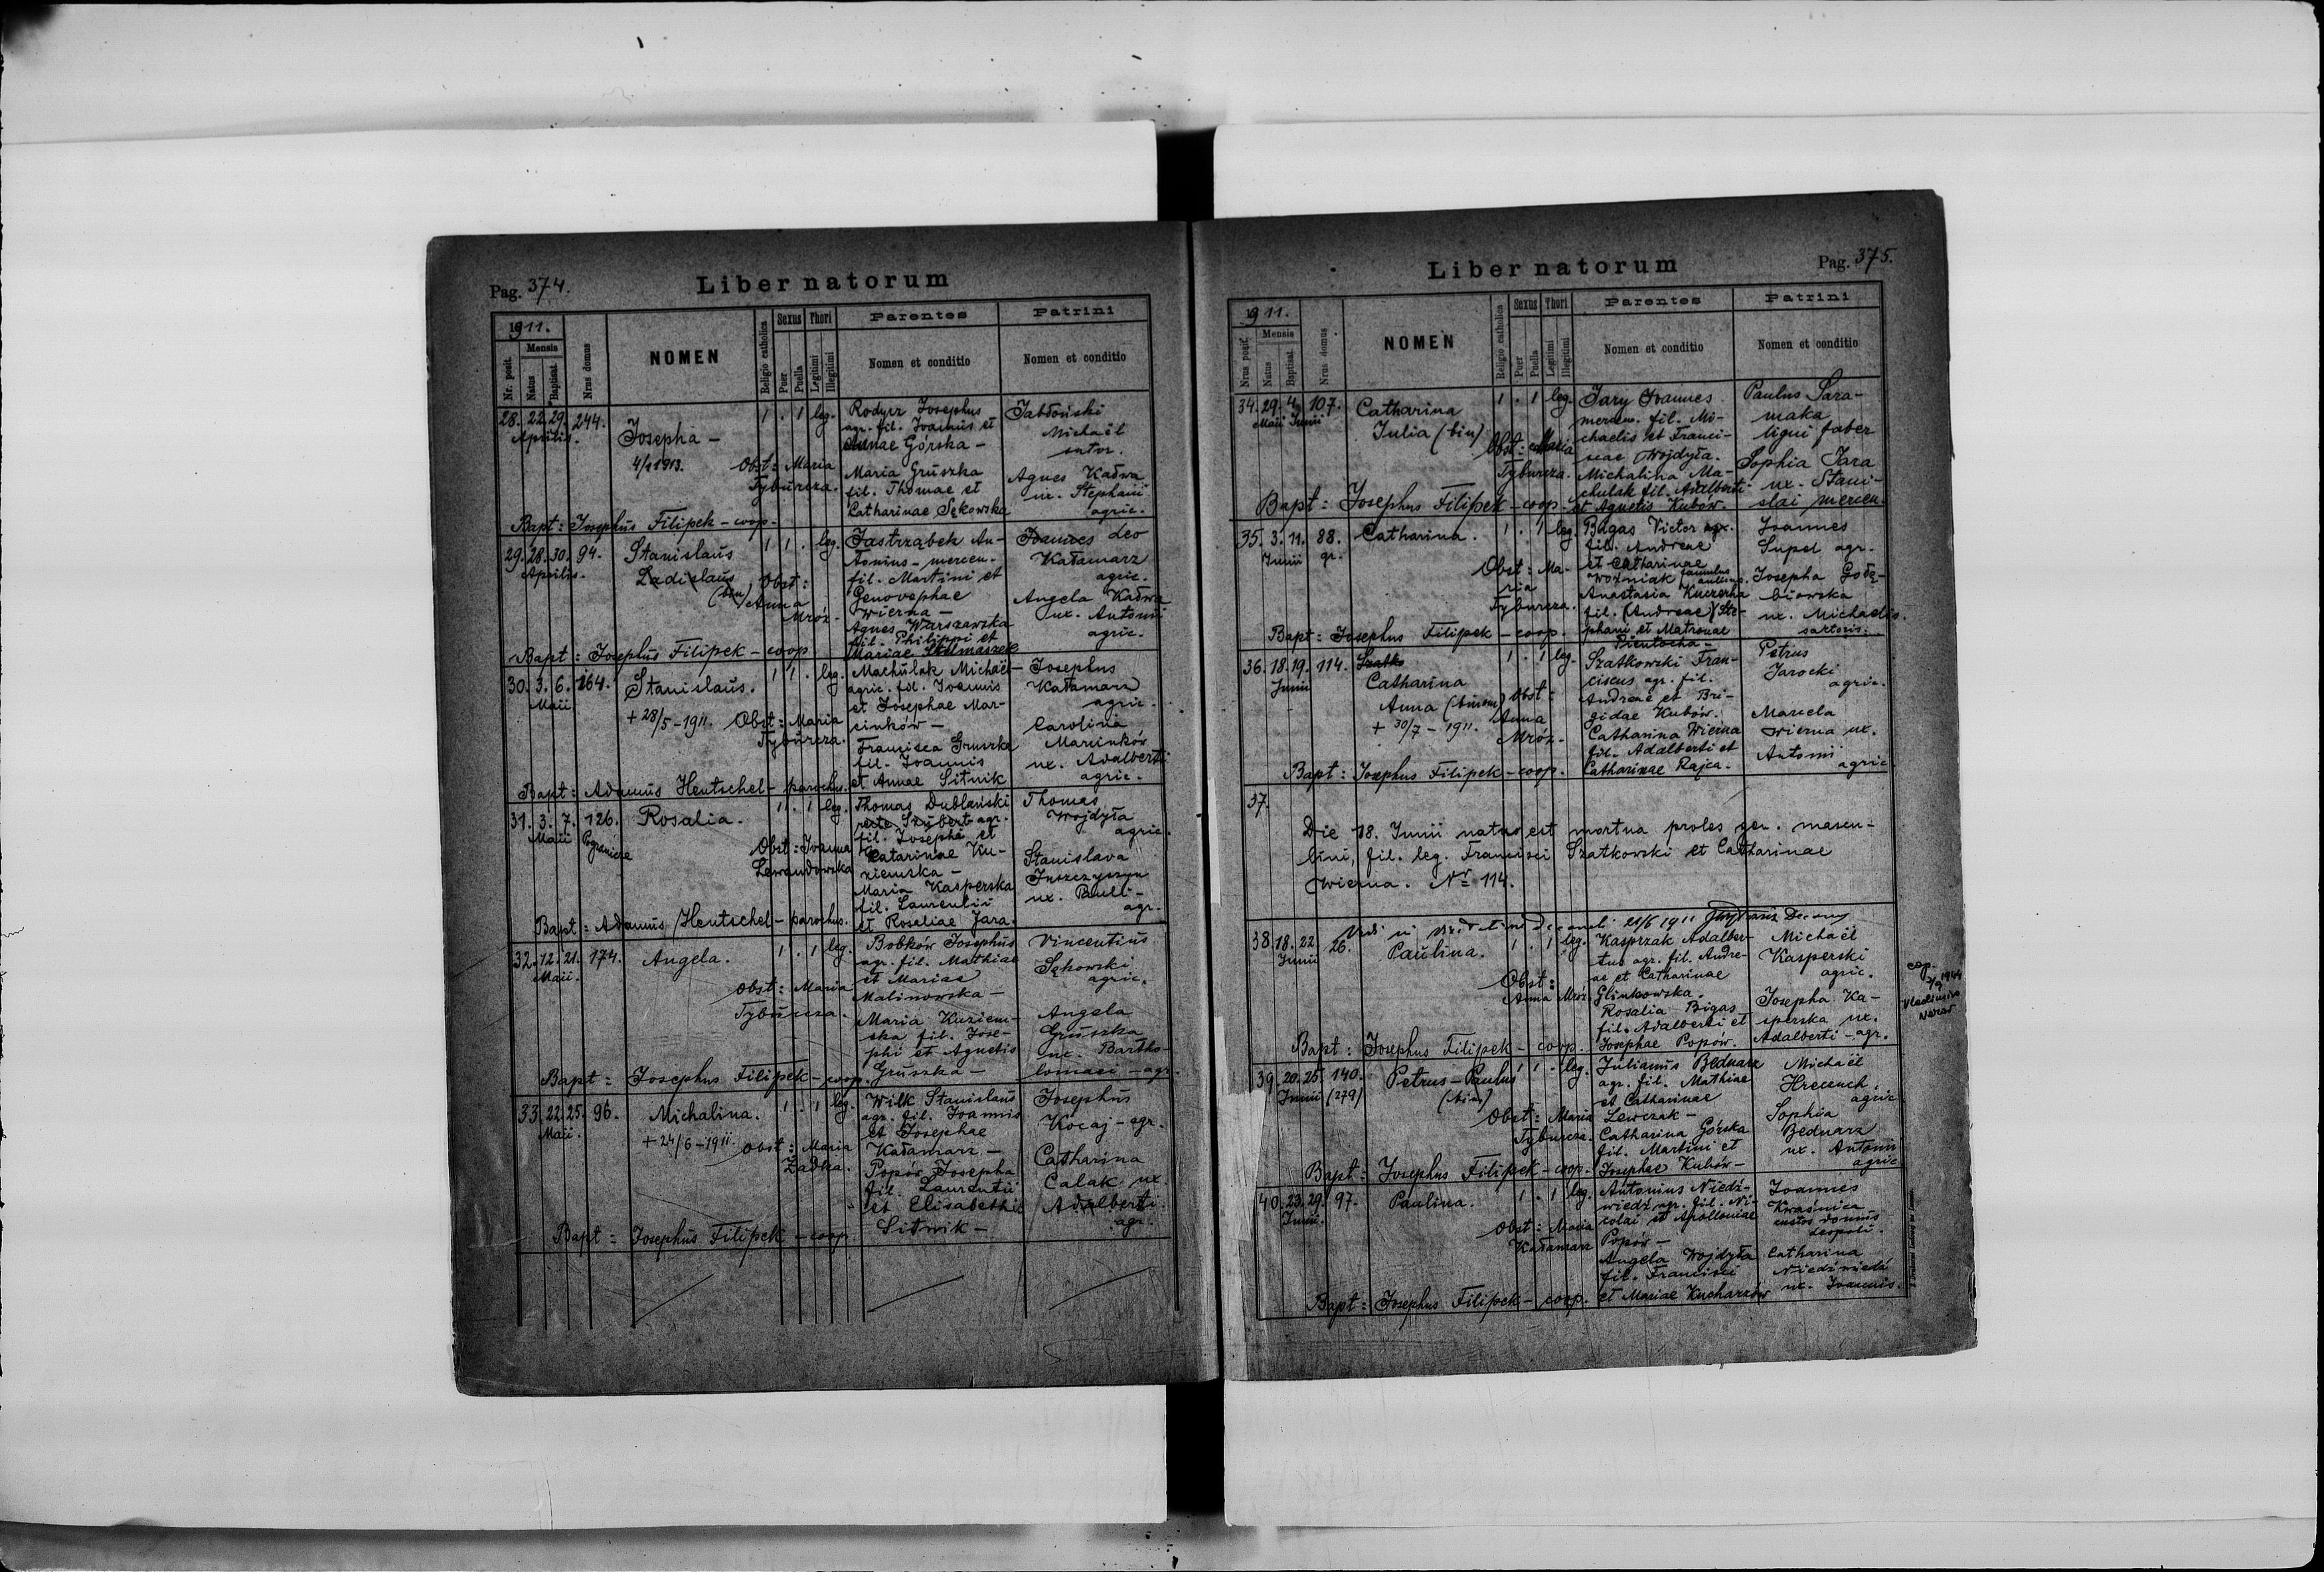 Pag. 374.
Liber natorum
1911.
Nr. posit.
Mensis
Natus
Baptisat.
Nrus domus
NOMEN
Religio catholica
Sexus
Puer
Puella
Thori
Legitimi
Illegitimi
Parentes
Nomen et conditio
Patrini
Nomen et conditio
28. 22. 29. 244.
Aprilis.
Josepha –
4/1 1913.
1 . 1 leg.
Obst: Maria
Tyburcza.
Rodycz Josephus
agr. fil. Joannis et
Annae Górska –
Maria Gruszka
fil. Thomae et
Catharinae Sękowska
Jabłoński
Michaël
sutor.
Agnes Kadwa
ux. Stephani
agric.
Bapt: Josephus Filipek – coop.
29. 28. 30. 94.
Aprilis.
Stanislaus
Ladislaus
(bin)
1 1 . leg.
Obst:
Anna
Mróz.
Jastrząbek An-
tonius – mercen.
fil. Martini et
Genovephae
Wierna –
Agnes Warszawska
fil. Philippi et
Mariae Stelmaszek
Joannes Leo
Kałamarz
agric.
Angela Kadwa
ux. Antonii
agric.
Bapt: Josephus Filipek – coop
30. 3. 6. 164.
Maii
Stanislaus.
+ 28/5 – 1911.
1 1 . leg.
Obst: Maria
Tyburcza.
Machulak Michaël –
agric. fil. Joannis
et Josephae Mar-
cinków –
Francisca Gruszka
fil. Joannis
et Annae Sitnik
Josephus
Kałamarz
agric.
Carolina
Marcinków
ux. Adalberti
agric.
Bapt: Adamus Hentschel – parochus.
31. 3. 7. 126.
Maii Pogranicze
Rosalia.
1 . 1 leg.
Obst: Joanna
Lewandowska
Thomas Dublański
recte Szubert agr.
fil. Josephi et
Catarinae Ku-
ziemska –
Maria Kasperska
fil. Laurentii
et Rosaliae Jara.
Thomas
Wojdyła
agric.
Stanislava
Juszczyszyn
ux. Pauli –
agr.
Bapt: Adamus Hentschel – parochus.
32. 12. 21. 174.
Maii.
Angela.
1 . 1 leg.
Obst: Maria
Tyburcza.
Bobków Josephus
agr. fil. Mathiae
et Mariae
Malinowska –
Maria Kuziem-
ska fil. Jose-
phi et Agnetis
Gruszka –
Vincentius
Sękowski
agric.
Angela
Gruszka
ux. Bartho-
lomaei – agr.
Bapt: Josephus Filipek – coop.
33. 22. 25. 96.
Maii.
Michalina.
+ 24/6 – 1911.
1 . 1 leg.
Obst: Maria
Żadka.
Wilk Stanislaus
agr. fil. Joannis
et Josephae
Kałamarz –
Popów Josepha
fil. Laurentii
et Elisabethae
Sitnik –
Josephus
Kocaj – agr.
Catharina
Calak ux.
Adalberti.
agr.
Bapt: Josephus Filipek – coop.
Liber natorum
Pag. 375.
1911.
Nrus posit.
Mensis
Natus
Baptisat.
Nrus domus
NOMEN
Religio catholica
Sexus
Puer
Puella
Thori
Legitimi
Illegitimi
Parentes
Nomen et conditio
Patrini
Nomen et conditio
34. 29. 4. 107.
Maii Junii
Catharina
Julia (bin)
1 . 1 leg.
Obst: Maria
Tyburcza.
Jary Joannes
mercen. fil. Mi-
chaelis et Franci-
scae Wojdyła.
Michalina Ma-
chulak fil. Adalberti
et Agnetis Kubów.
Paulus Sara-
maka
ligni faber
Sophia Jara
ux. Stani-
slai mercen.
Bapt: Josephus Filipek – coop.
35. 3. 11. 88.
Junii gr.
Catharina.
1 . 1 leg.
Obst: Ma-
ria
Tyburcza.
Bugas Victor agr.
fil. Andreae
et Catharinae
Woźniak famulus
Anastasia Kuczerha
fil. (Andreae) Ste-
phani et Matronae
Pientocha –
Joannes
Supel agr.
Josepha Gołę-
biowska
ux. Michaelis
sartoris.
Bapt: Josephus Filipek – coop.
36. 18. 19. 114.
Junii
Szatko
Catharina
Anna (binom)
+ 30/7 – 1911.
1 . 1 leg.
Obst:
Anna
Mróz.
Szatkowski Fran-
ciscus agr. fil.
Andreae et Bri-
gidae Kubów.
Catharina Wierna
fil. Adalberti et
Catharinae Rajca.
Petrus
Jarocki
agric.
Marcela
Wierna ux.
Antonii
agric.
Bapt: Josephus Filipek – coop.
37.
Die 18. Junii natus est mortua proles gen. mascu-
lini, fil. leg. Francisci Szatkowski et Catharinae
Wierna. Nr 114.
22/6 1911
38. 18. 22. 26.
Junii
Paulina.
1 . 1 leg.
Obst:
Anna Mróz.
Kasprzak Adalber-
tus agr. fil. Andre-
ae et Catharinae
Glinkowska.
Rosalia Bigas
fil. Adalberti et
Josephae Popów.
Michaël
Kasperski
agric.
Josepha Ka-
sperska ux.
Adalberti – agr.
cop.
1944
Bapt: Josephus Filipek – coop.
39. 20. 25. 140.
Junii (279)
Petrus – Paulus
(bin)
1 1 . leg.
Obst: Maria
Tyburcza.
Julianus Bednarz
agr. fil. Mathiae
et Catharinae
Lewczak –
Catharina Górska
fil. Martini et
Josephae Kubów –
Michaël
Hrecench.
agric.
Sophia
Bednarz
ux. Antonii
agric.
Bapt: Josephus Filipek – coop.
40. 23. 29. 97.
Junii.
Paulina.
1 . 1 leg.
Obst: Maria
Kałamarz
Antonius Niedź-
wiedź agr. fil. Ni-
colai et Apolloniae
Popów –
Angela Wojdyła
fil. Francisci
et Mariae Kucharzów
Joannes
Kwaśnica
custos domus
Leopoli.
Catharina
Niedźwiedź
ux. Joannis.
Bapt: Josephus Filipek – coop.